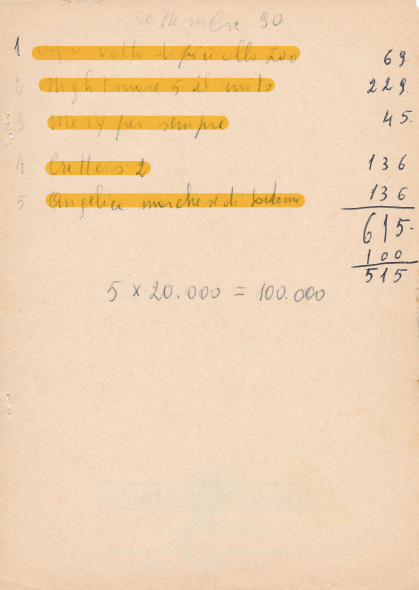 Settembre 90
1 ogni volta di più allo zoo 69
2 Nightmare 5 il mito 229.
3 Mery per sempre 45.
4 Critters 2 136
5 Angelica marchesa di 136
615.
100
515
5 x 20.000 = 100.000